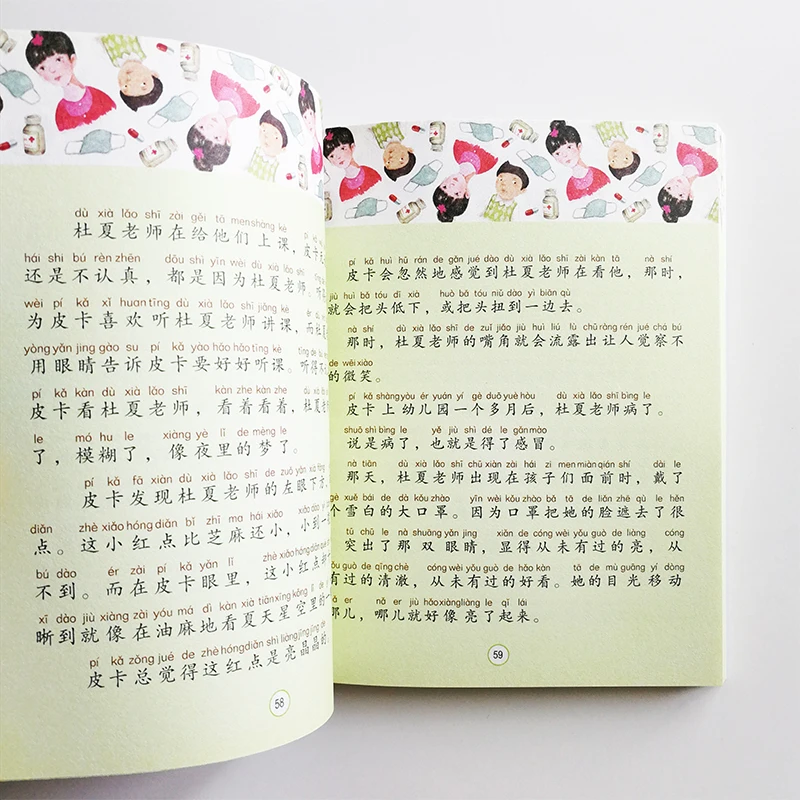 dù xià lǎo shī zài gěi tā men shàng kè pí
杜夏老师在给他们上课，皮卡
hái shi bú rèn zhēn dōu shì yīn wèi dù xià lǎo shī
还是不认真，都是因为杜夏老师。
wèi pí kǎ xǐ huan tīng dù xià lǎo shī jiǎng kè ér
为皮卡喜欢听杜夏老师讲课，而
yòng yǎn jing gào su pí kǎ yào hǎo hāo tīng kè
用眼睛告诉皮卡要好好听课。听得
pí kǎ kàn dù xià lǎo shī kàn zhe kàn zhe
皮卡看杜夏老师，看着看着，杜夏
le mó hu le xiàng yè lǐ de mèng le
了，模糊了，像夜里的梦了。
pí kǎ fā xiàn dù xià lǎo shī de zuǒ yǎn xià
皮卡发现杜夏老师的左眼下
diǎn zhè xiǎo hóng diǎn bǐ zhī ma hái xiǎo xiǎo dào
点。这小红点比芝麻还小，小到一
bú dào ér zài pí kǎ yǎn lǐ zhè xiǎo hóng diǎn
不到。而在皮卡眼里，这小红点
xī dào jiù xiàng zài yóu má dì kàn xià tiān xīng kōng
晰到就像在油麻地看夏天星空里的
pí kǎ zǒng jué de zhè hóng diǎn shì liàng jīng jīng de
皮卡总觉得这红点是亮晶晶的
58
pí kǎ huì hū rán de gǎn jué dào dù xià lǎo shī zài kàn tā nà shí
皮卡会忽然地感觉到杜夏老师在看他，那时，
jiù huì bǎ tóu dī xià huò bǎ tóu niǔ dào yì biān qù
就会把头低下，或把头扭到一边去。
nà shí dù xià lǎo shī de zuǐ jiǎo jiù huì liú lù chū ràng rén jué chá bú
那时，杜夏老师的嘴角就会流露出让人觉察不
de wēi xiào
的微笑。
pí kǎ shàng yòu ér yuán yí gè duō yuè hòu dù xià lǎo shī bìng le
皮卡上幼儿园一个多月后，杜夏老师病了。
shuō shì bìng le yě jiù shì dé le gǎn mào
说是病了，也就是得了感冒。
nà tiān dù xià lǎo shī chū xiàn zài hái zi men miàn qián shí dài le
那天，杜夏老师出现在孩子们面前时，戴了
gè xuě bái de dà kǒu zhào yīn wèi kǒu zhào bǎ tā de liǎn zhē qù le hěn
个雪白的大口罩。因为口罩把她的脸遮去了很
tū chū le nà shuāng yǎn jing xiǎn de cóng wèi yǒu guò de liàng cóng
突出了那双眼睛，显得从未有过的亮，从
yǒu guò de qīng chè cóng wèi yǒu guò de hǎo kàn tā de mù guāng yí dòng
有过的清澈，从未有过的好看。她的目光移动
nǎ er jiù hǎo xiàng liàng le qǐ lái
那儿，哪儿就好像亮了起来。
59